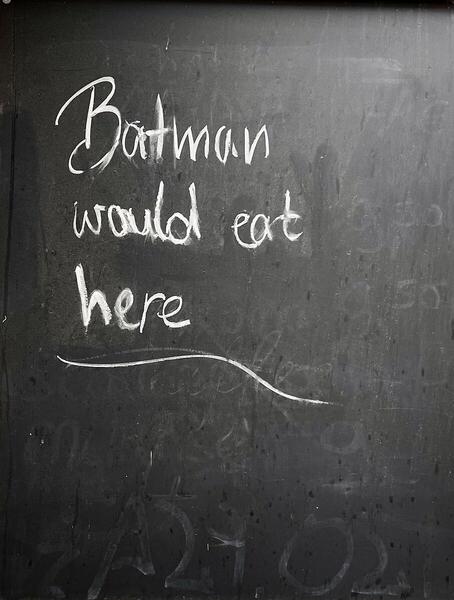 Batman
would eat
here